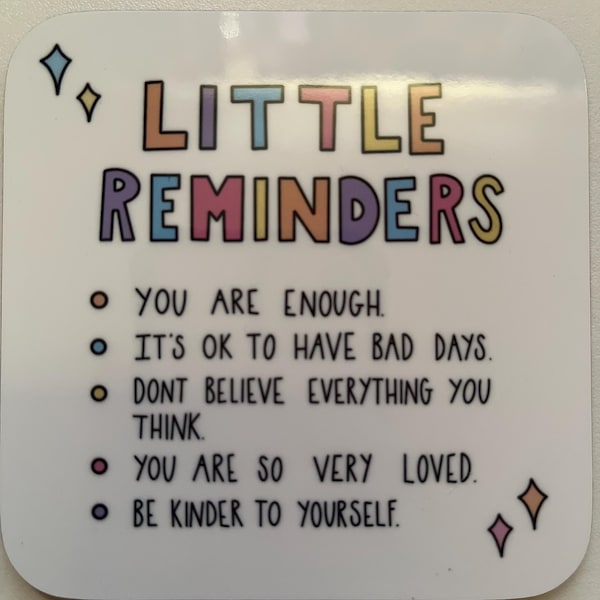 LITTLE
REMINDERS
YOU ARE ENOUGH.
IT'S OK TO HAVE BAD DAYS.
DONT BELIEVE EVERYTHING YOU
THINK.
YOU ARE SO VERY LOVED.
BE KINDER TO YOURSELF.